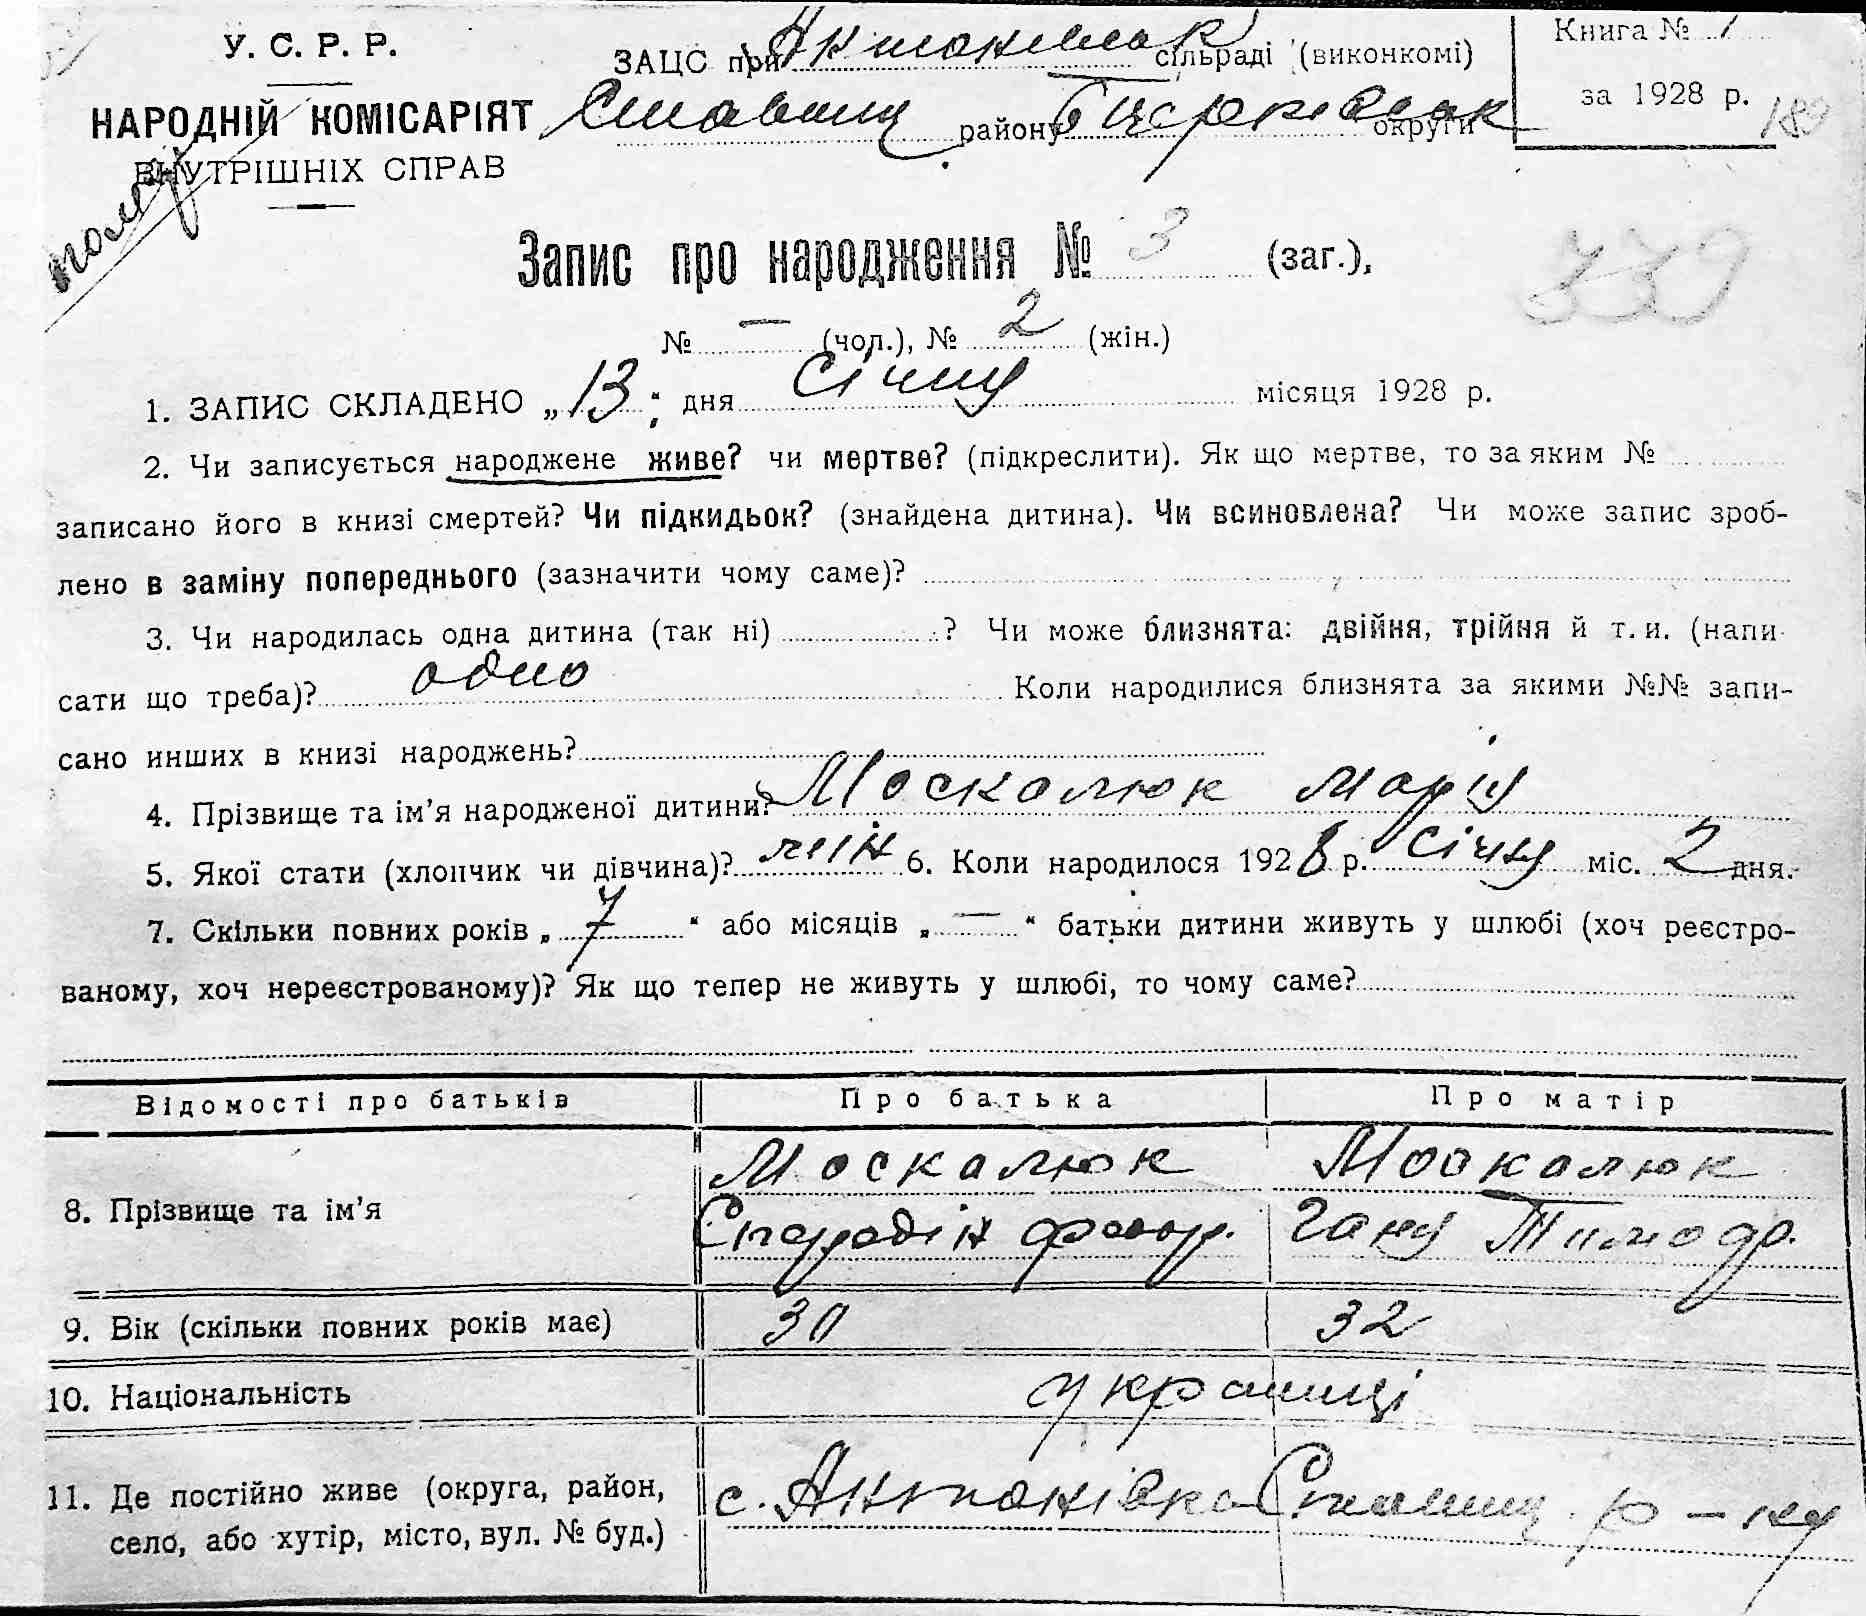 У. С. Р. Р.
НАРОДНІЙ КОМІСАРІЯТ
ВНУТРІШНІХ СПРАВ
ЗАЦС при сільраді (виконкомі)
Ставищ району Бцерківськ округи
Книга № 1
за 1928 р.
189
Запис про народження № 3 (заг.),
339
№ — (чол.), № 2 (жін.)
1. ЗАПИС СКЛАДЕНО „13“ дня січня місяця 1928 р.
2. Чи записується народжене живе? чи мертве? (підкреслити). Як що мертве, то за яким №
записано його в книзі смертей? Чи підкидьок? (знайдена дитина). Чи всиновлена? Чи може запис зроб-
лено в заміну попереднього (зазначити чому саме)?
3. Чи народилась одна дитина (так ні) ? Чи може близнята: двійня, трійня й т. и. (напи-
сати що треба)? одно Коли народилися близнята за якими №№ запи-
сано инших в книзі народжень?
4. Прізвище та ім’я народженої дитини? Москалюк Марія
5. Якої стати (хлопчик чи дівчина)? жін 6. Коли народилося 1928 р. січня міс. 2 дня.
7. Скільки повних років „ 7 “ або місяців „ — “ батьки дитини живуть у шлюбі (хоч реєстро-
ваному, хоч нереєстрованому)? Як що тепер не живуть у шлюбі, то чому саме?
Відомості про батьків Про батька Про матір
8. Прізвище та ім’я Москалюк Москалюк
Спиридін Ганна Тимоф.
9. Вік (скільки повних років має) 30 32
10. Національність українці
11. Де постійно живе (округа, район,
село, або хутір, місто, вул. № буд.)
с. Антонівка Ставищ. р-ну